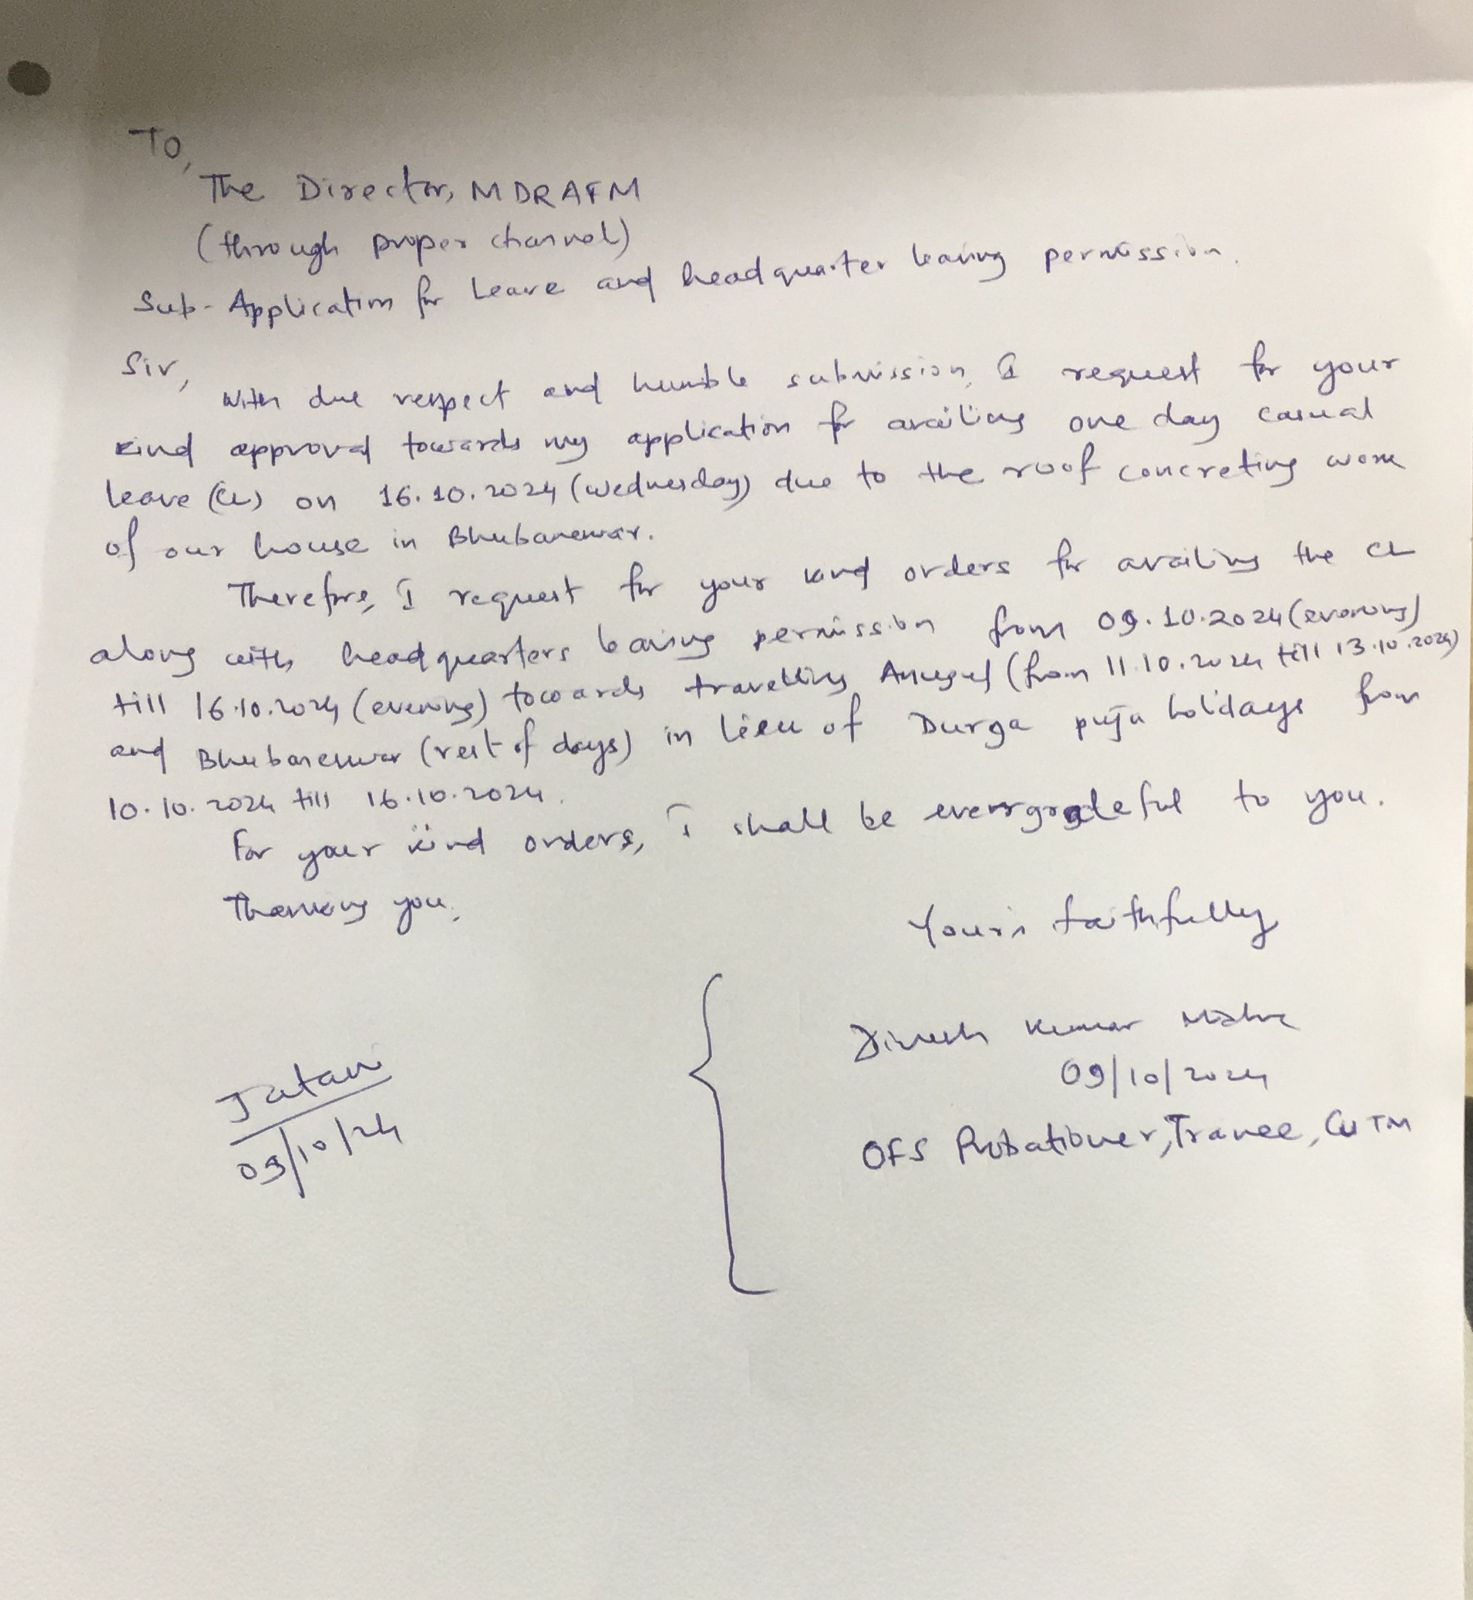 To,
The Director, MDRAFM
(through proper channel)
Sub- Application for Leave and headquarter leaving permission.
Sir,
With due respect and humble submission, I request for your
kind approval towards my application for availing one day casual
leave (CL) on 16.10.2024 (Wednesday) due to the roof concreting work
of our house in Bhubaneswar.
Therefore, I request for your kind orders for availing the CL
along with headquarters leaving permission from 09.10.2024 (evening)
till 16.10.2024 (evening) towards travelling Anugul (from 11.10.2024 till 13.10.2024)
and Bhubaneswar (rest of days) in lieu of Durga puja holidays from
10.10.2024 till 16.10.2024.
For your kind orders, I shall be evergrateful to you.
Thanking you,
Yours faithfully
Dinesh Kumar
09/10/2024
OFS Probationer, Trainee, CUTM
Jatani
09/10/24